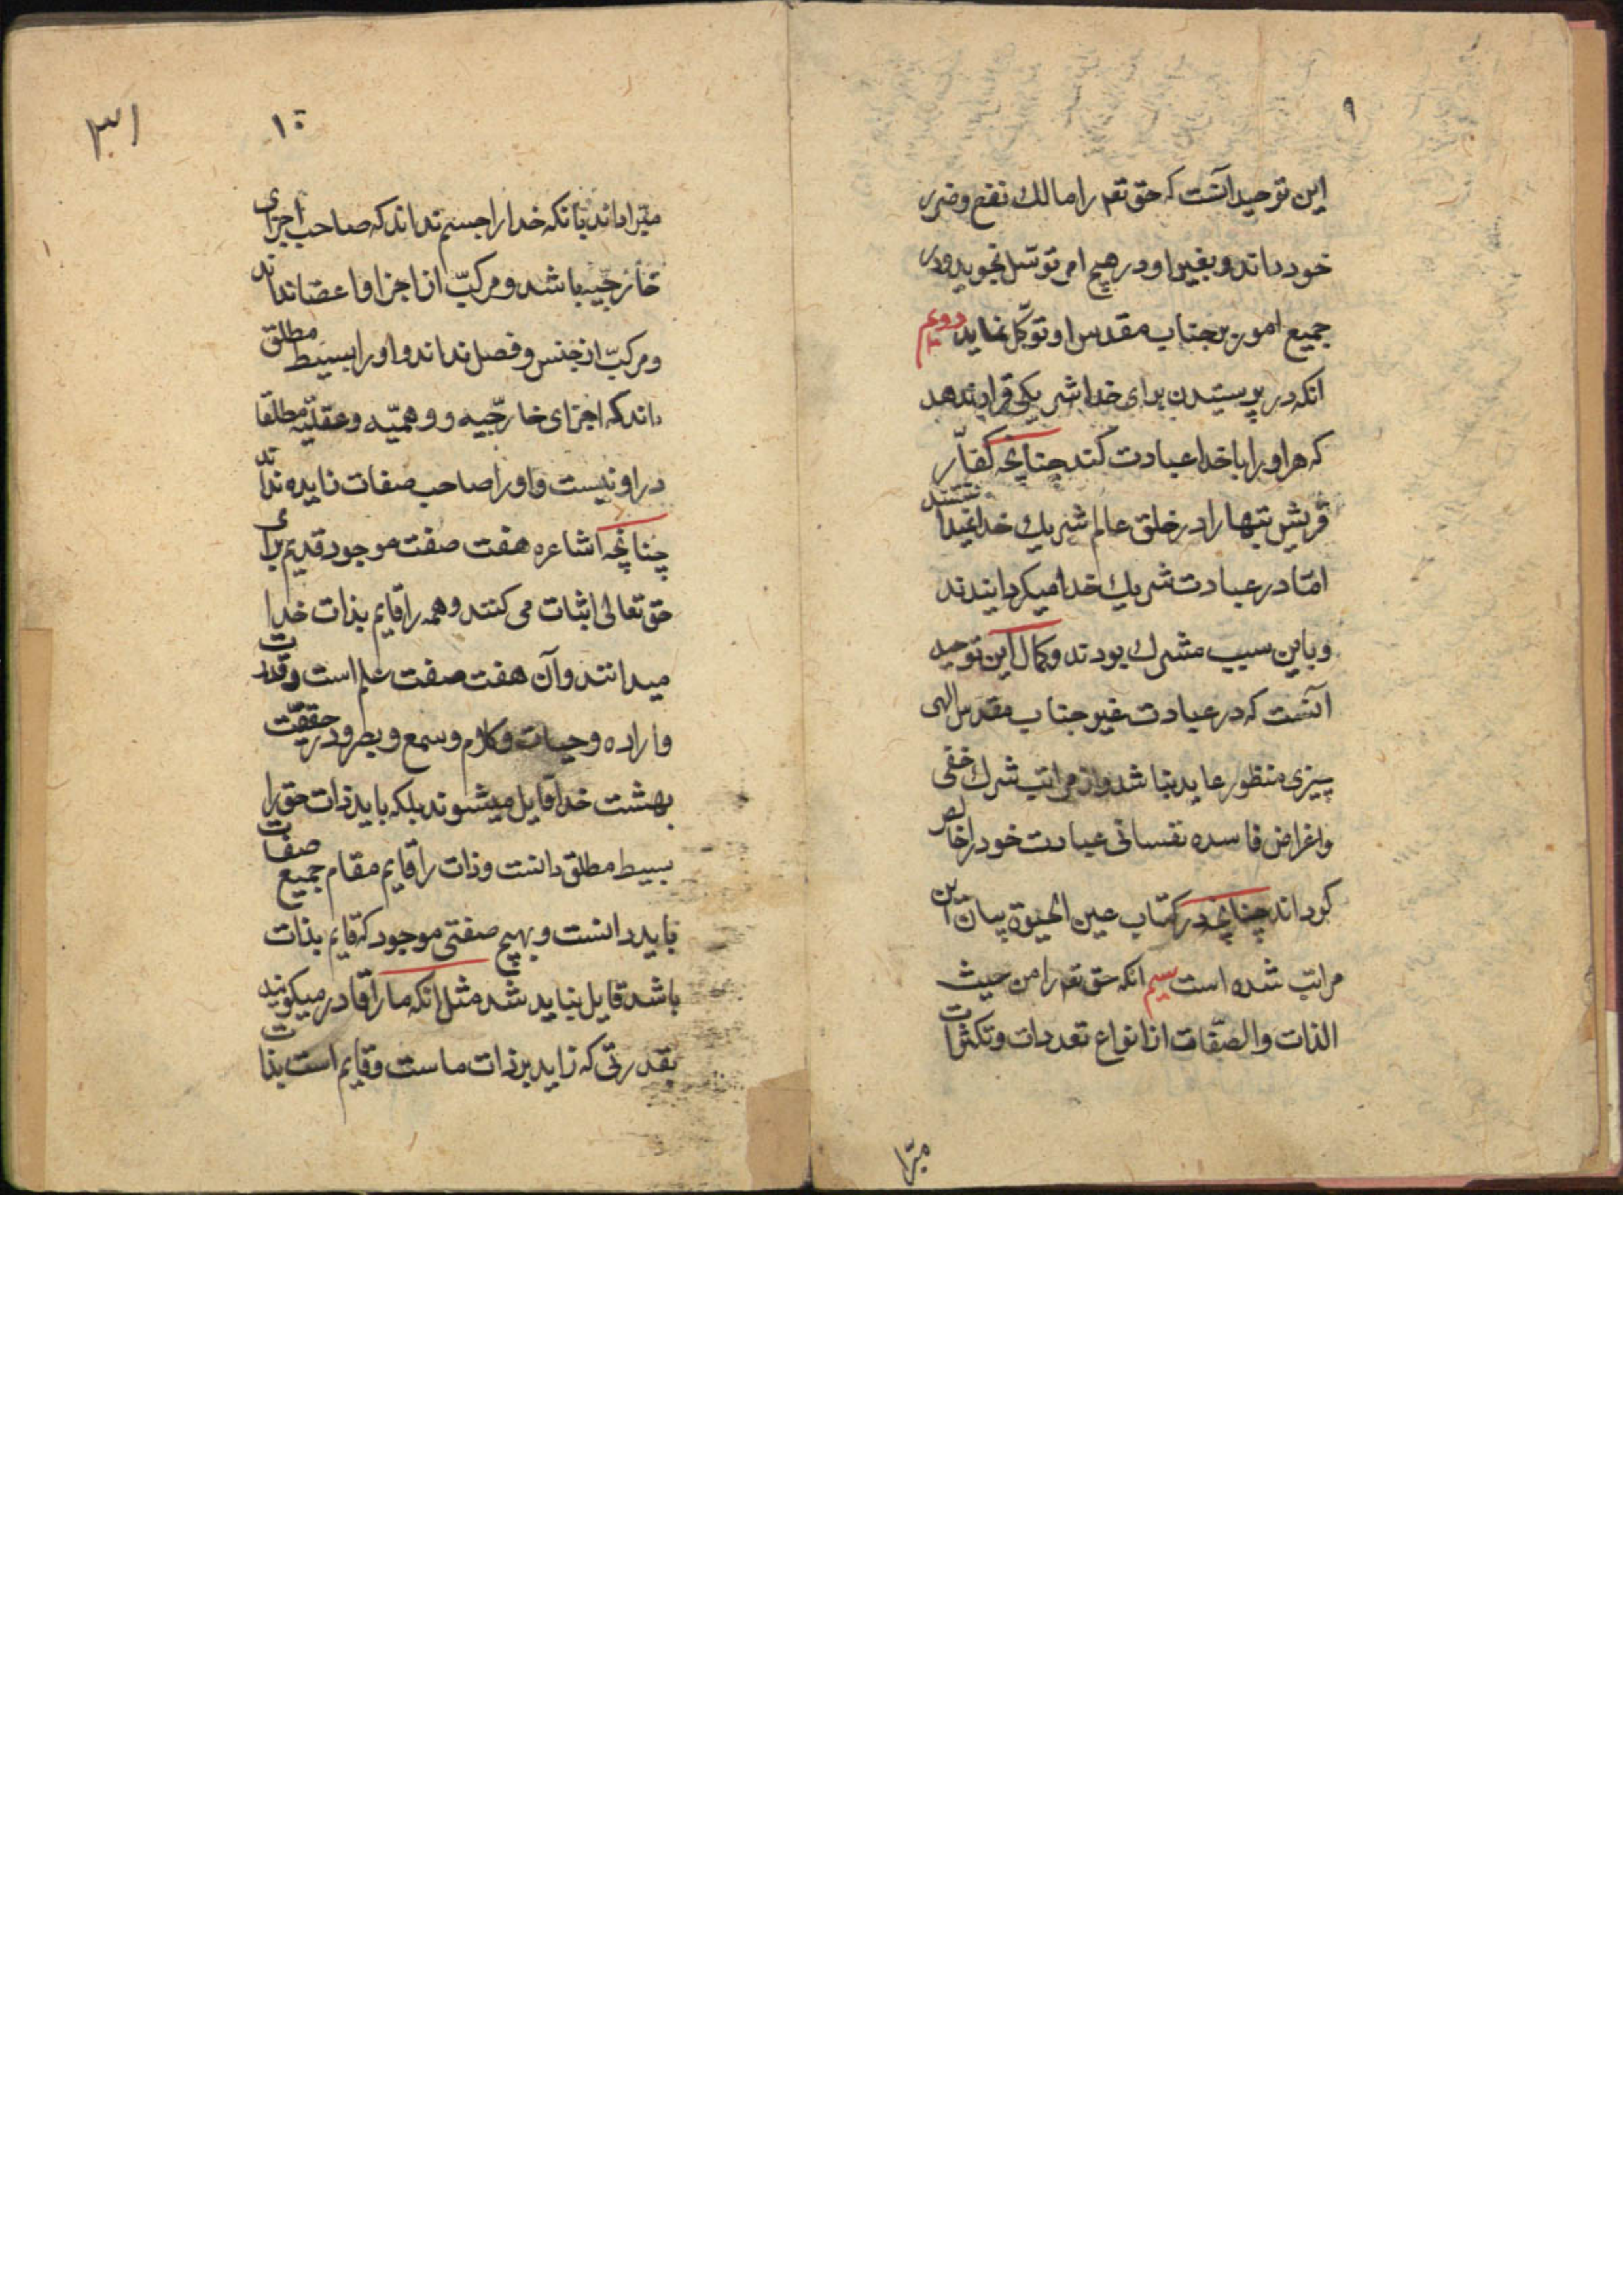 ۹
این توحید آنست که حق تعم را مالک نفع و ضرر
خود داند و بغیر او در هیچ امر توسّل نجوید و در
جمیع امور بر جناب مقدس او توکّل نماید دویم
آنکه در پرستیدن برای خدا شریکی قرار ندهد
که هر او را با خدا عبادت کند چنانچه کفّار
قریش بتها را در خلق عالم شریک خدا نمیدانستند
امّا در عبادت شریک خدا میکردانیدند
و باین سبب مشرک بودند و کمال این توحید
آنست که در عبادت غیر جناب مقدس الهی
چیزی منظور عابد نباشد و از مراتب شرک خفی
و اغراض فاسده نفسانی عبادت خود را خالص
کرداند چنانچه در کتاب عین الحیوة بیان این
مراتب شده است سیم آنکه حق تعم را من حیث
الذات والصّفات از انواع تعددات و تکثرات
مبّرا
۱۰
۳۱
مبّرا داند بآنکه خدا را جسم نداند که صاحب اجزای
خارجیّه باشد و مرکبّ از اجزا و اعضا نداند
و مرکبّ از جنس و فصل نداند و او را بسیط مطلق
داند که اجزای خارجّیه و وهمیّه و عقلیّه مطلقا
در او نیست و او را صاحب صفات زایده نداند
چنانچه اشاعره هفت صفت موجود قدیم برای
حق تعالی اثبات می کنند و همه را قایم بذات خدا
میدانند و آن هفت صفت علم است و قدرت
و اراده و حیات و کلام و سمع و بصر و در حقیقت
بهشت خدا قایل میشوند بلکه باید ذات حق را
بسیط مطلق دانست و ذات را قایم مقام جمیع صفات
باید دانست و بهیچ صفتی موجود که قایم بذات
باشد قایل نباید شد مثل آنکه ما را قادر میکویند
بقدرتی که زاید بر ذات ماست و قایم است بذات